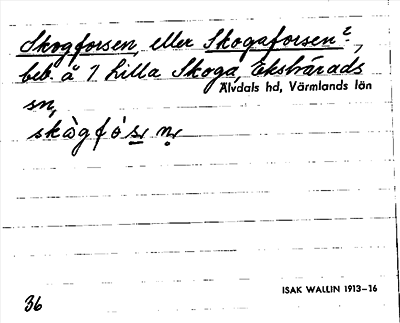 Skogforsen, eller Skogaforsen ?,
beb. å 1 Lilla Skoga, Ekshärads
Älvdals hd, Värmlands län
sn,
ISAK WALLIN 1913–16
36